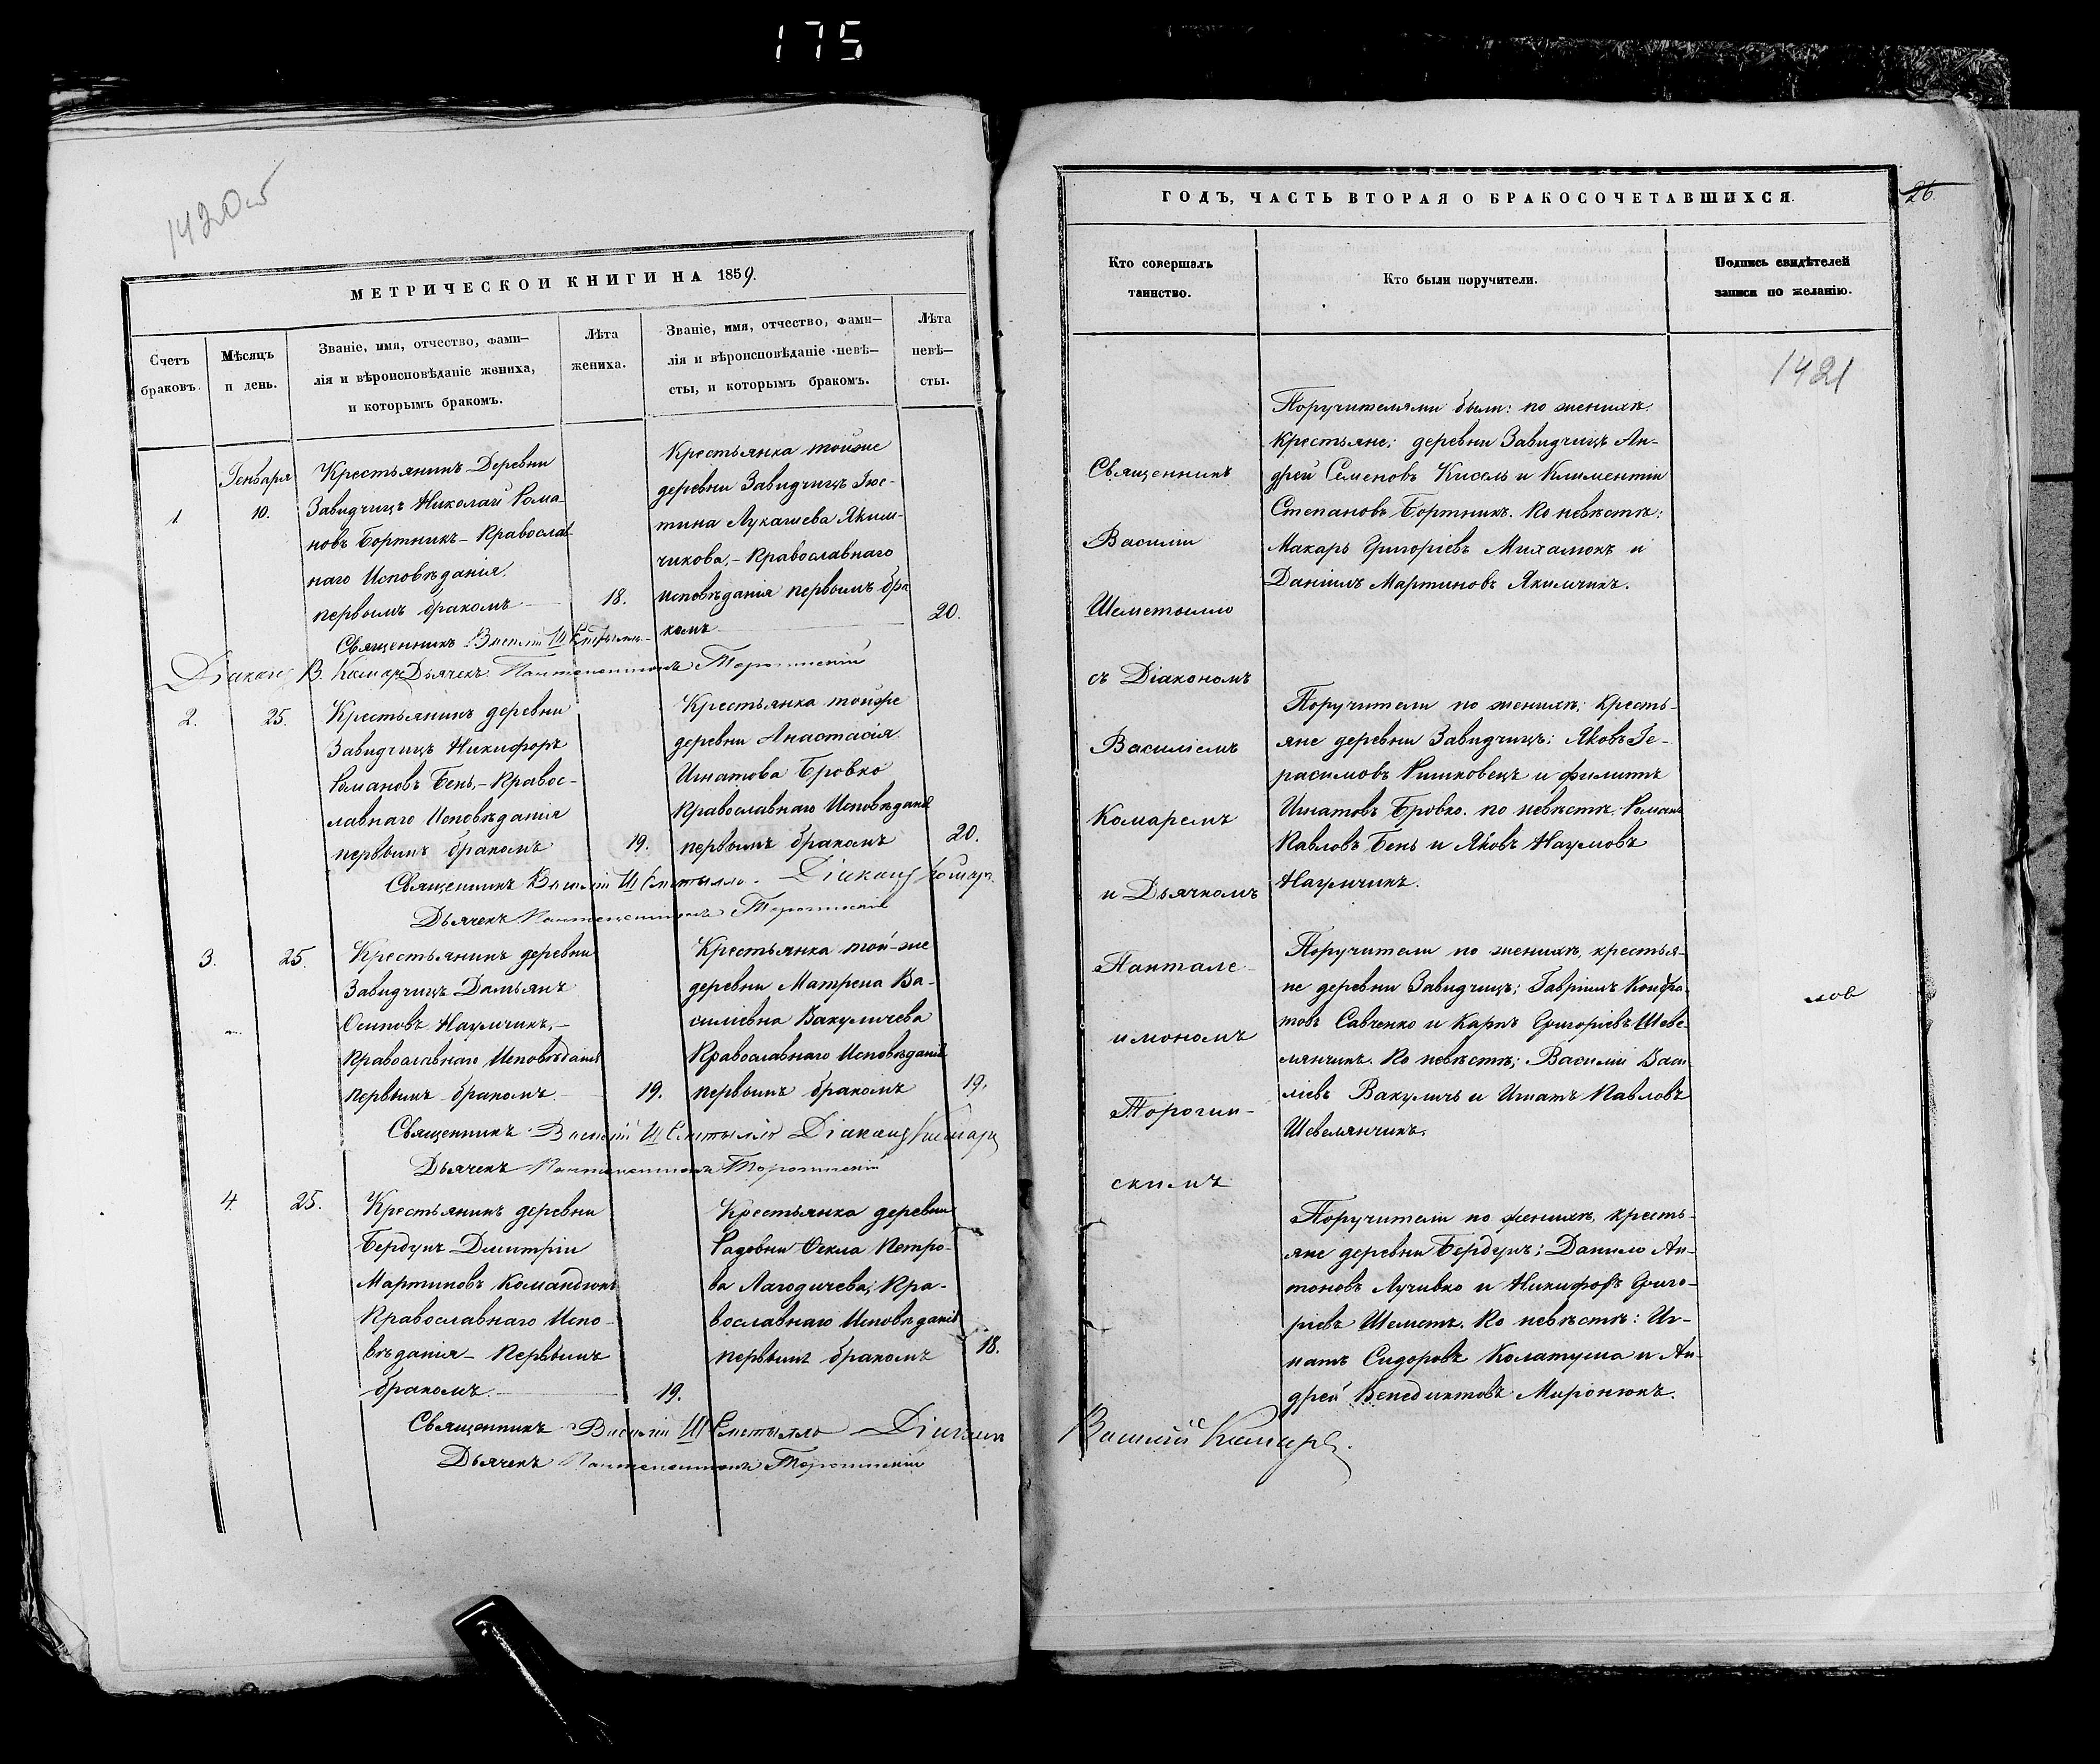 175
1420об
МЕТРИЧЕСКОЙ КНИГИ НА 1859.
Счетъ браковъ.
Мѣсяцъ и день.
Званіе, имя, отчество, фами-
лія и вѣроисповѣданіе жениха,
и которымъ бракомъ.
Лѣта жениха.
Званіе, имя, отчество, фами-
лія и вѣроисповѣданіе невѣ-
сты, и которымъ бракомъ.
Лѣта невѣ-
сты.
1
Генваря
10.
Крестьянинъ Деревни
Завидчицъ Николай Рома-
новъ Бортникъ - Православ
наго Исповѣданія,
первымъ бракомъ
18.
Крестьянка тойже
деревни Завидчицъ Іюс-
тина Лукашева Яким-
чикова, - Православнаго
исповѣданія первымъ бра
комъ
20.
Священникъ Василій Шеметылло
Діаконъ В. Комаръ Дьячекъ Пантелеимонъ Торогинскій
2.
25.
Крестьянинъ деревни
Завидчицъ Никифоръ
Романовъ Бень, - Правос-
лавнаго Исповѣданія
первымъ бракомъ
19.
Крестьянка тойже
деревни Анастасія
Игнатова Бровко
Православнаго Исповѣданія
первымъ бракомъ
20.
Священникъ Василій Шеметылло. Діаконъ Комаръ
Дьячекъ Пантелеимонъ Торогинскій
3.
25.
Крестьянинъ деревни
Завидчицъ Дамьянъ
Осиповъ Наумчикъ, -
Православнаго Исповѣданія
первымъ бракомъ.
19.
Крестьянка той-же
деревни Матрена Ва-
сильевна Вакуличева
Православнаго Исповѣданія
первымъ бракомъ
19.
Священникъ Василій Шеметылло Діаконъ Комаръ
Дьячекъ Пантелеимонъ Торогинскій
4.
25.
Крестьянинъ деревни
Бердунъ Димитрій
Мартиновъ Командюкъ
Православнаго Испо-
вѣданія - Первымъ
бракомъ.
19.
Крестьянка деревни
Радовни Ѳекла Петро-
ва Лагодичева, Пра-
вославнаго Исповѣданія
первымъ бракомъ
18.
Священникъ Василій Шеметылло Діаконъ
Дьячекъ Пантелеимонъ Торогинскій
ГОДЪ, ЧАСТЬ ВТОРАЯ О БРАКОСОЧЕТАВШИХСЯ.
26.
Кто совершалъ
таинство.
Кто были поручители.
Подпись свидѣтелей
записи по желанію.
1421
Священникъ
Василій
Шеметылло
съ Діакономъ
Василіемъ
Комаремъ
и Дьячкомъ
Пантале-
имономъ
Торогин-
скимъ
Поручителями были: по женихѣ
Крестьяне: деревни Завидчицъ Ан-
дрей Семеновъ Кисель и Климентій
Степановъ Бортникъ. По невѣстѣ:
Макаръ Григоріевъ Михалюкъ и
Даніилъ Мартиновъ Якимчикъ.
Поручители по женихѣ; Кресть-
яне деревни Завидчицъ: Яковъ Ге-
расимовъ Ришковецъ и Филиппъ
Игнатовъ Бровко. по невѣстѣ: Романъ
Павловъ Бень и Яковъ Наумовъ
Наумчикъ.
Поручители по женихѣ, крестья-
не деревни Завидчицъ; Гавріилъ Конфра-
товъ Савченко и Карпъ Григоріевъ Шеве-
лянчикъ. По невѣстѣ; Василій Васи
ліевъ Вакуличъ и Игнатъ Павловъ
Шевелянчикъ.
лов
Поручители по женихѣ, кресть-
яне деревни Бердунъ; Данило Ан-
тоновъ Лучивко и Никифоръ Григо-
ріевъ Шеметъ. По невѣстѣ: Иг-
натъ Сидоровъ Колатуша и Ан-
дрей Венедиктовъ Миронюкъ.
Василій Комаръ.